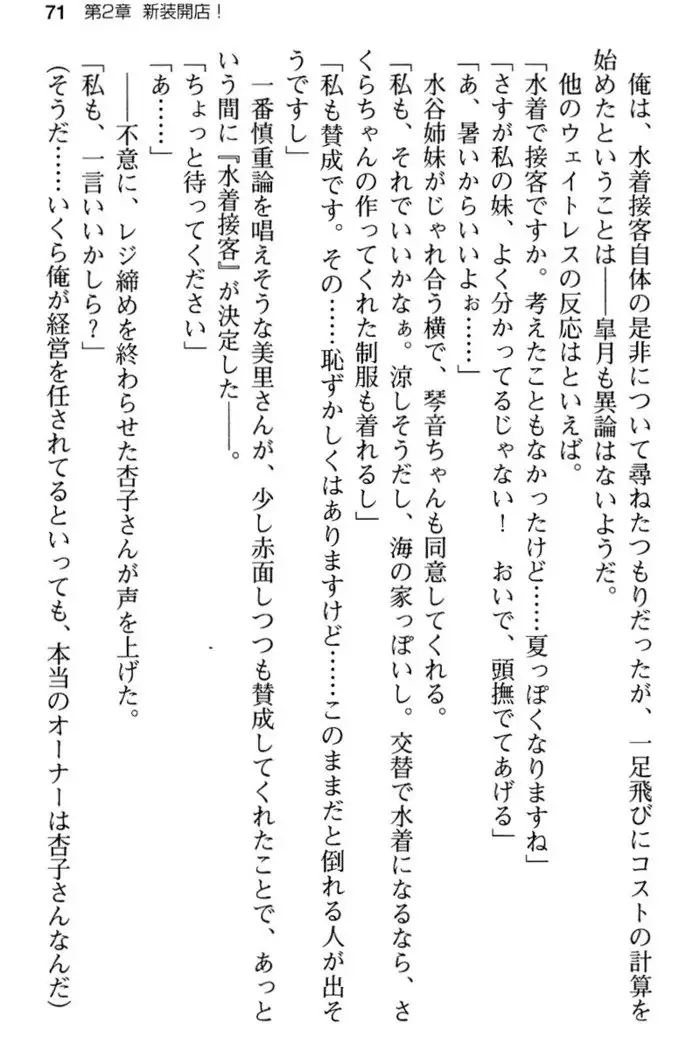 71 第2章 新装開店！
俺は、水着接客自体の是非について尋ねたつもりだったが、一足飛びにコストの計算を
始めたということは――皐月も異論はないようだ。
他のウェイトレスの反応はといえば。
「水着で接客ですか。考えたこともなかったけど……夏っぽくなりますね」
「さすが私の妹、よく分かってるじゃない！　おいで、頭撫でてあげる」
「あ、暑いからいいよぉ……」
水谷姉妹がじゃれ合う横で、琴音ちゃんも同意してくれる。
「私も、それでいいかなぁ。涼しそうだし、海の家っぽいし。交替で水着になるなら、さ
くらちゃんの作ってくれた制服も着れるし」
「私も賛成です。その……恥ずかしくはありますけど……このままだと倒れる人が出そ
うですし」
一番慎重論を唱えそうな美里さんが、少し赤面しつつも賛成してくれたことで、あっと
いう間に『水着接客』が決定した――。
「ちょっと待ってください」
「あ……」
――不意に、レジ締めを終わらせた杏子さんが声を上げた。
「私も、一言いいかしら？」
（そうだ……いくら俺が経営を任されてるといっても、本当のオーナーは杏子さんなんだ）